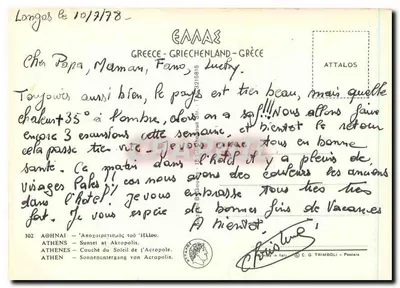 Longos le 10/7/78.
ΕΛΛΑΣ
GREECE - GRIECHENLAND - GRÈCE
ATTALOS
Cher Papa, Maman, Fano,
Toujours aussi bien, le pays est très beau, mais quelle
chaleur +35° à l'ombre, alors on a soif!!! Nous allons faire
encore 3 excursions cette semaine, et bientôt le retour
cela passe très vite - je vous tous en bonne
santé. Ce matin dans l'hôtel il y a pleins de
visages Pales!, car nous avons des couleurs les anciens
dans l'hôtel. Je vous embrasse tous très très
fort. Je vous espère de bonnes fins de Vacances
A bientôt!
Christine
302 ΑΘΗΝΑΙ - Ἀποχαιρετισμὸς τοῦ Ἥλιου.
ATHENS - Sunset at Akropolis.
ATHENES - Couché du Soleil de l'Acropole.
ATHEN - Sonnenuntergang von Acropolis.
© C. G. TRIMBOLI - Pescara